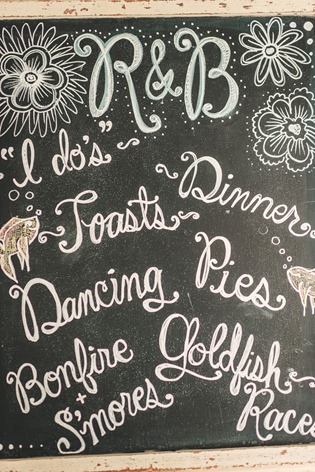 R & B
"I do's"
Dinner
Toasts
Pies
Dancing
Goldfish
Races
Bonfire
+
S'mores